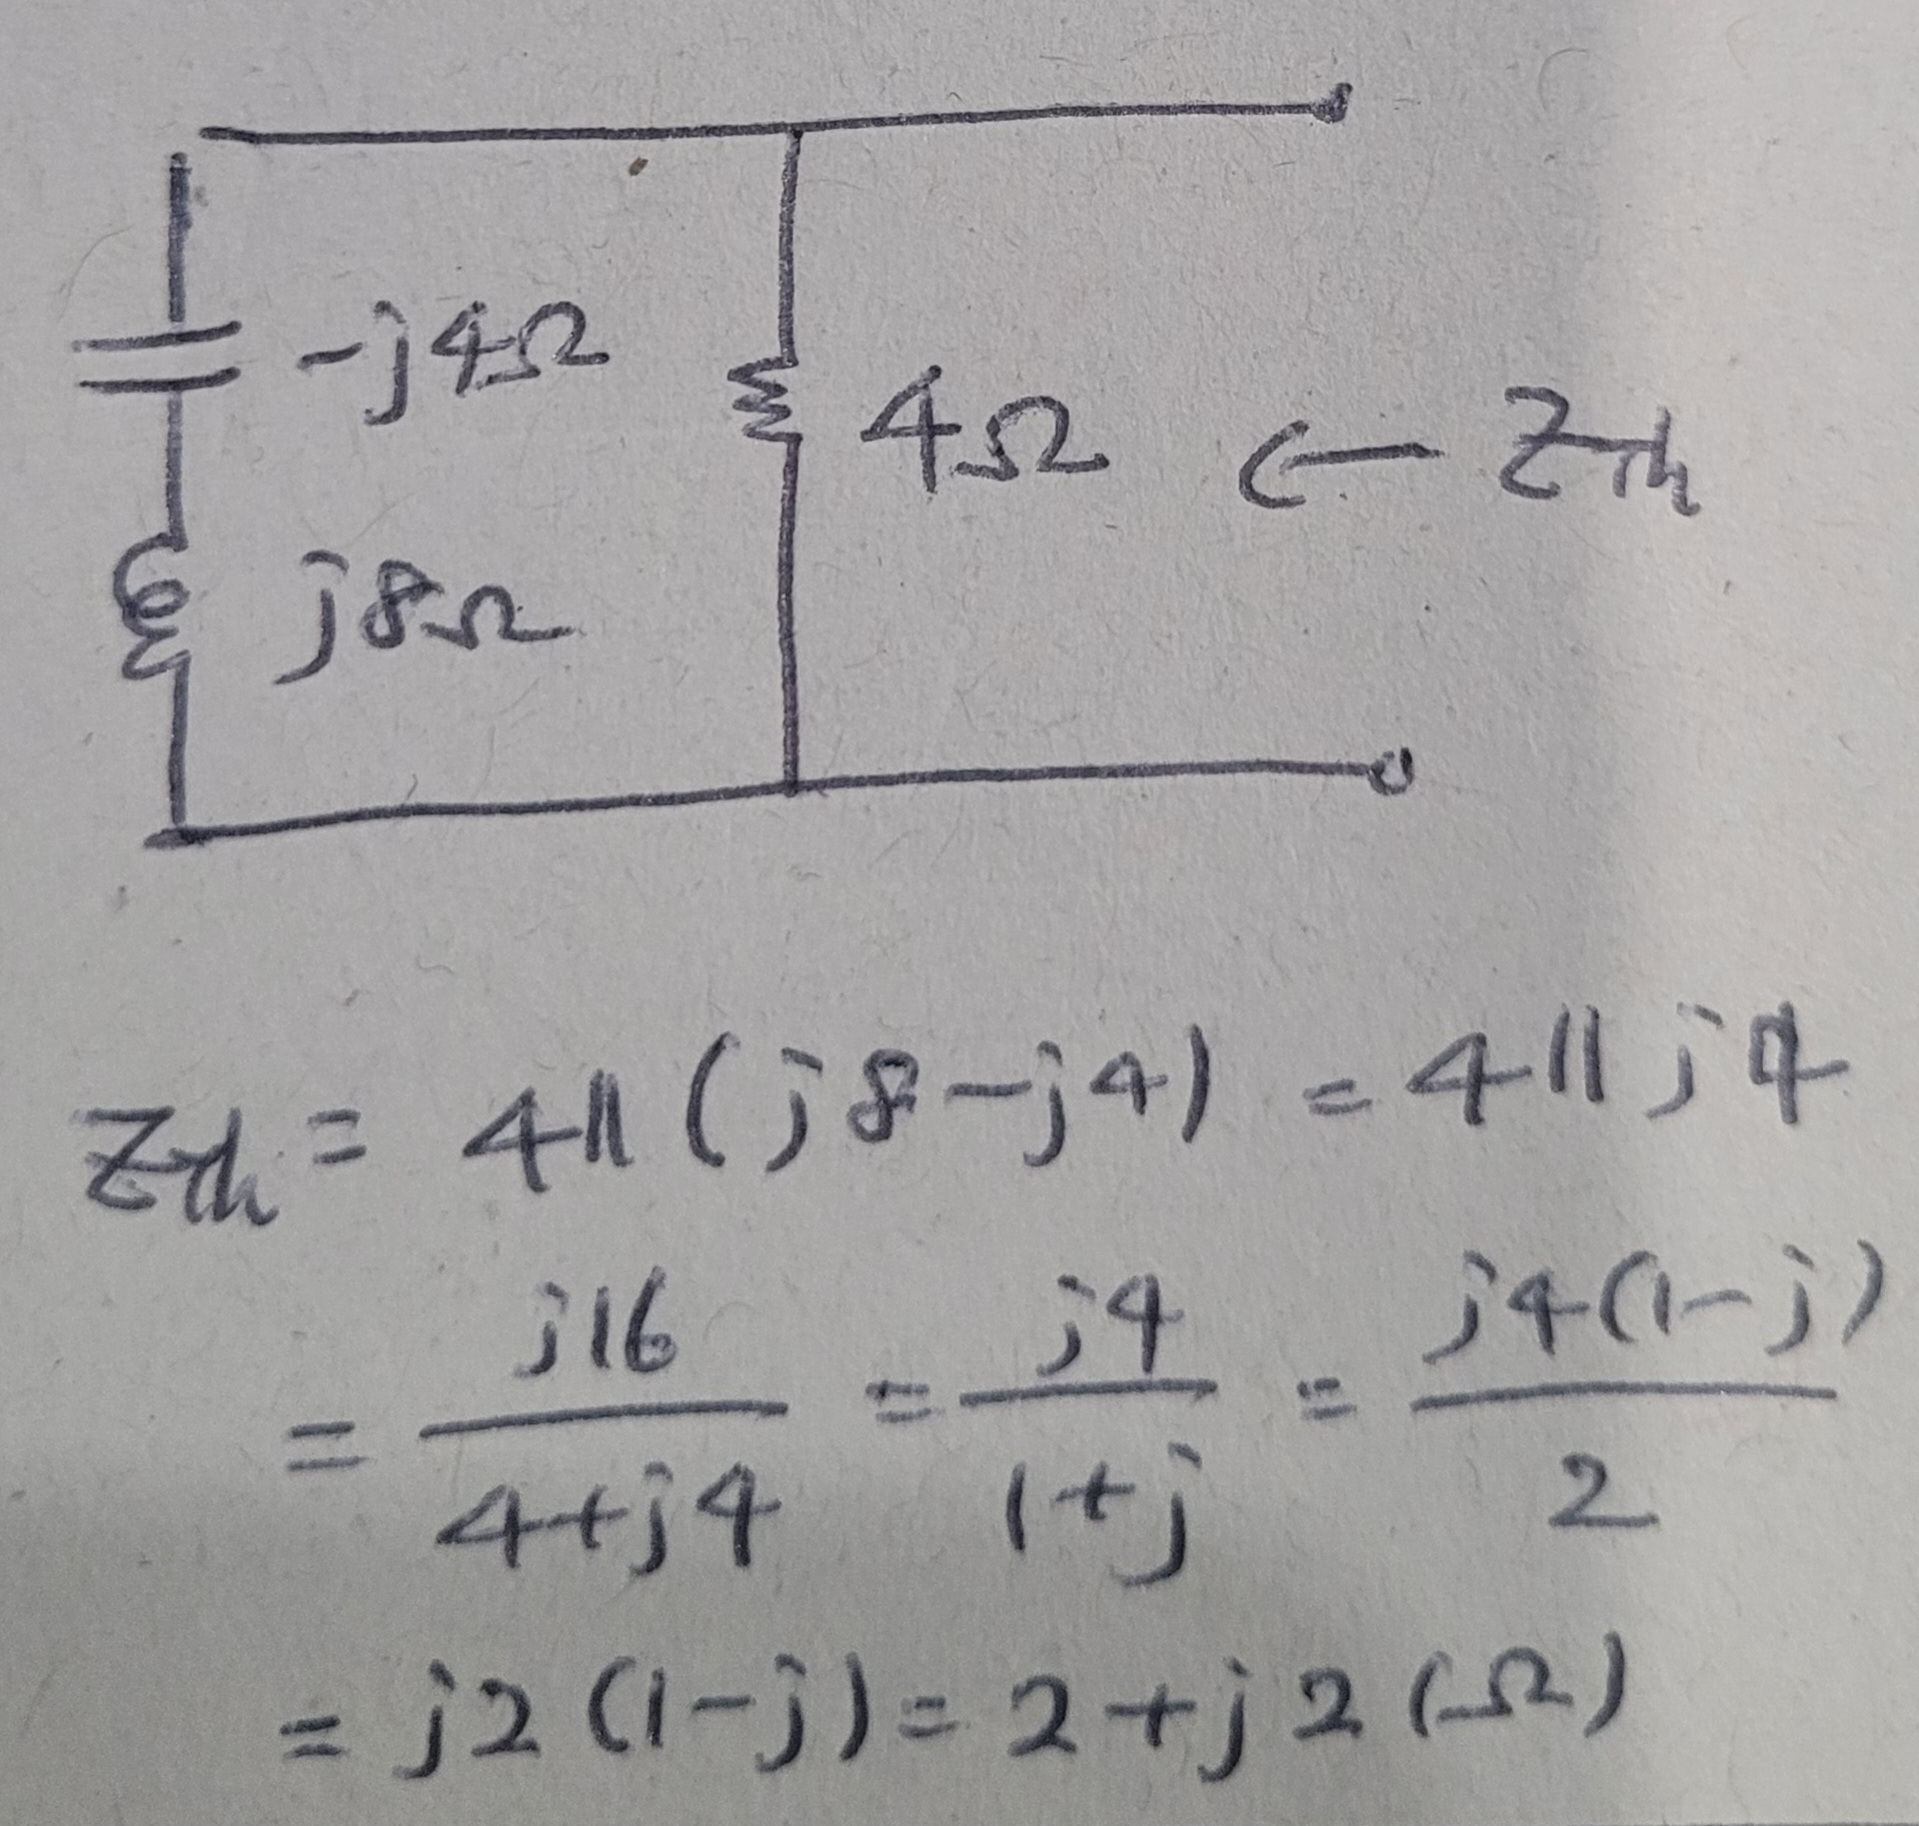 -j4Ω
4Ω ← Zth
j8Ω
Zth = 4||(j8-j4) = 4||j4
= j16/(4+j4) = j4/(1+j) = j4(1-j)/2
= j2(1-j) = 2+j2(Ω)